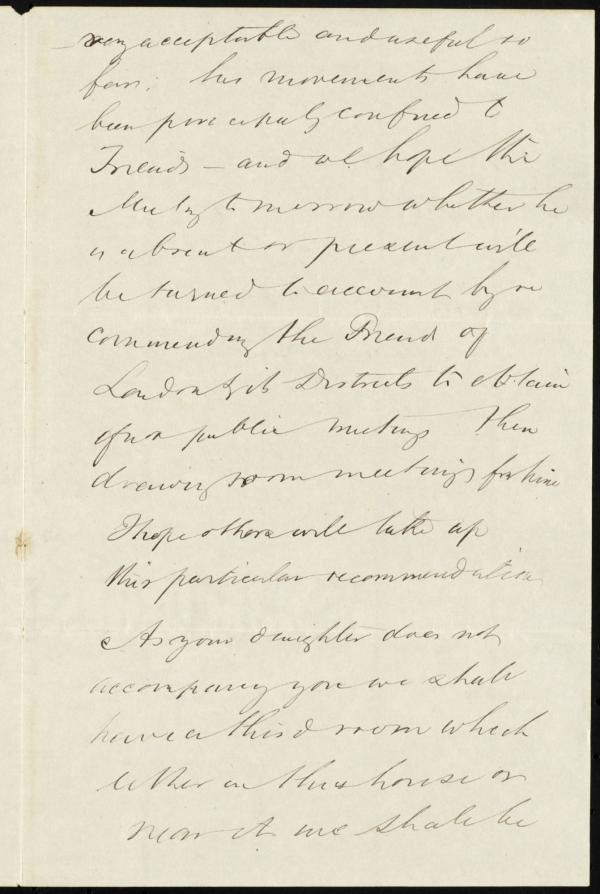 very acceptable and useful so
far; his movements have
been principally confined to
Friends – and we hope the
Meeting tomorrow whether he
is absent or present will
be turned to account by re
commending the Friends of
London & its Districts to obtain
public meetings then
drawing room meetings for him
I hope others will take up
this particular recommendation
As your daughter does not
accompany you we shall
have a third room which
either in this house or
near it we shall be